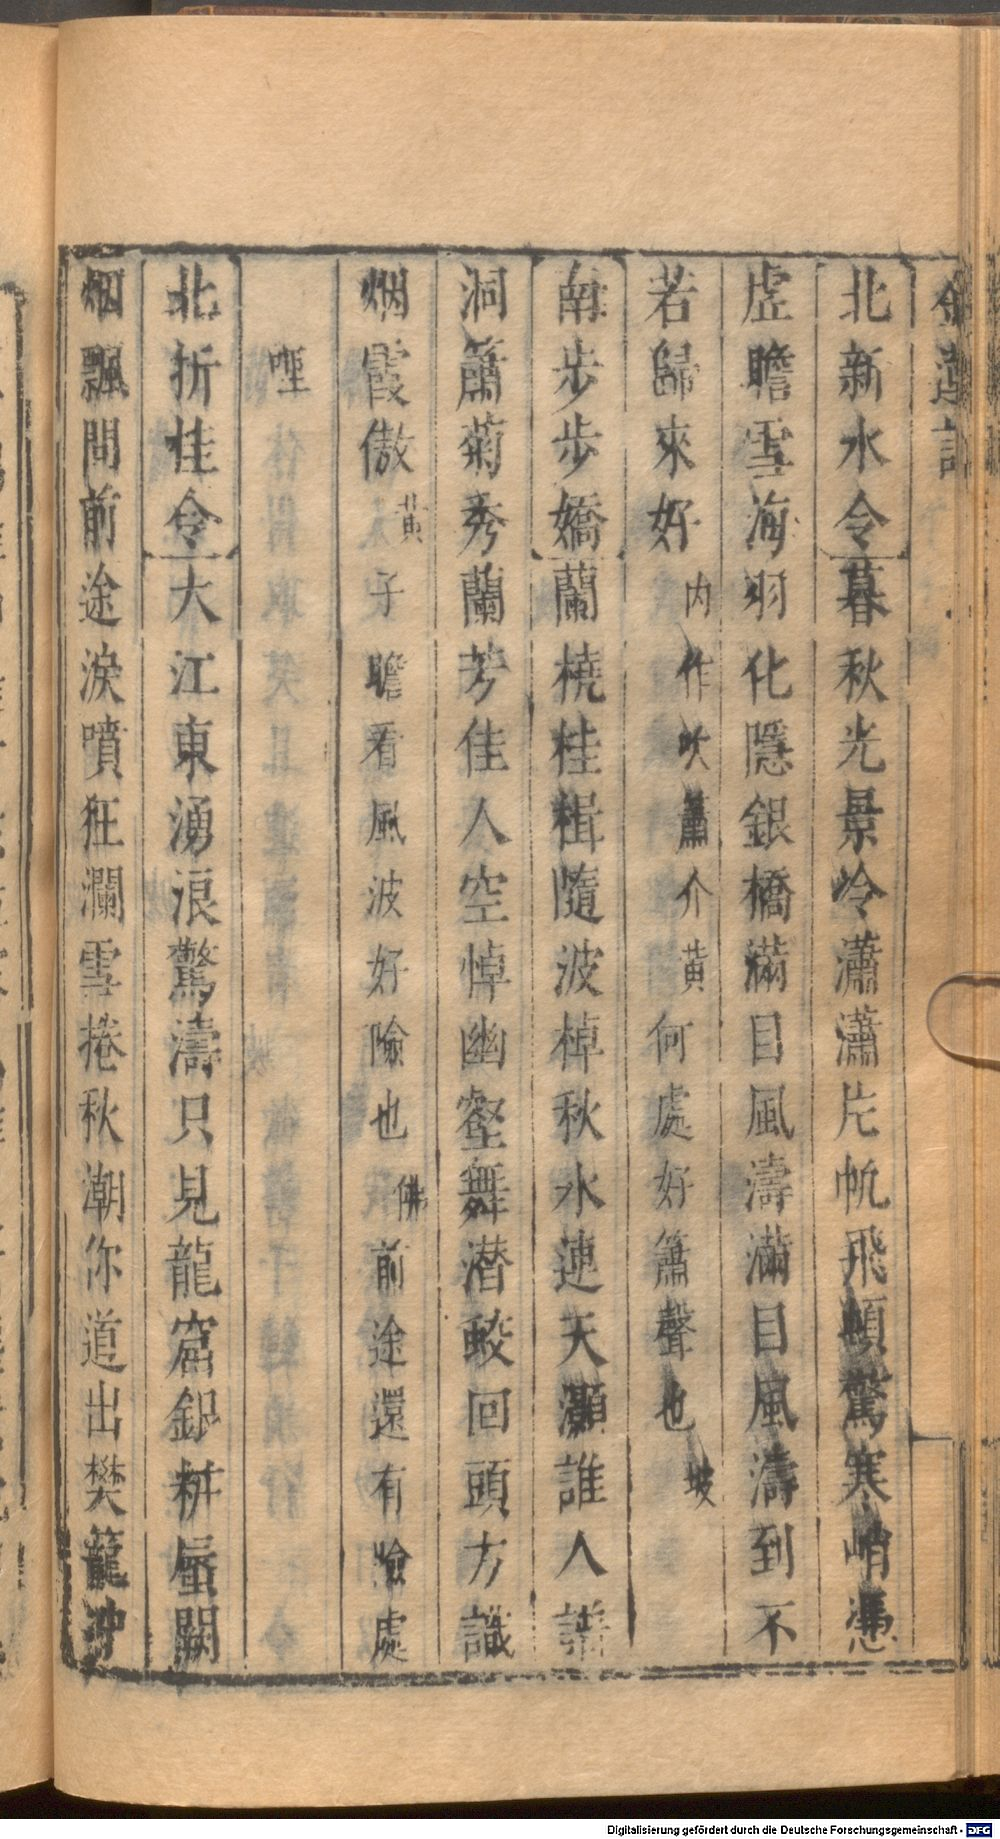 金蓮記
北新水令暮秋光景冷瀟瀟片帆飛頓驚寒峭憑
虗瞻雪海羽化隱銀橋滿目風濤滿目風濤到不
若歸來好内作吹簫介黃何處好簫聲也坡
南步步嬌蘭橈桂楫隨波棹秋水連天灝誰人譜
洞簫菊秀蘭芳佳人空悼幽壑舞潜蛟回頭方識
烟霞傲黃子瞻看風波好險也佛前途還有險處
哩
北折桂令大江東湧浪驚濤只見龍窟銀翻蜃闕
烟飄問前途淚噴狂瀾雪捲秋潮你道出樊籠冲
Digitalisierung gefördert durch die Deutsche Forschungsgemeinschaft - DFG